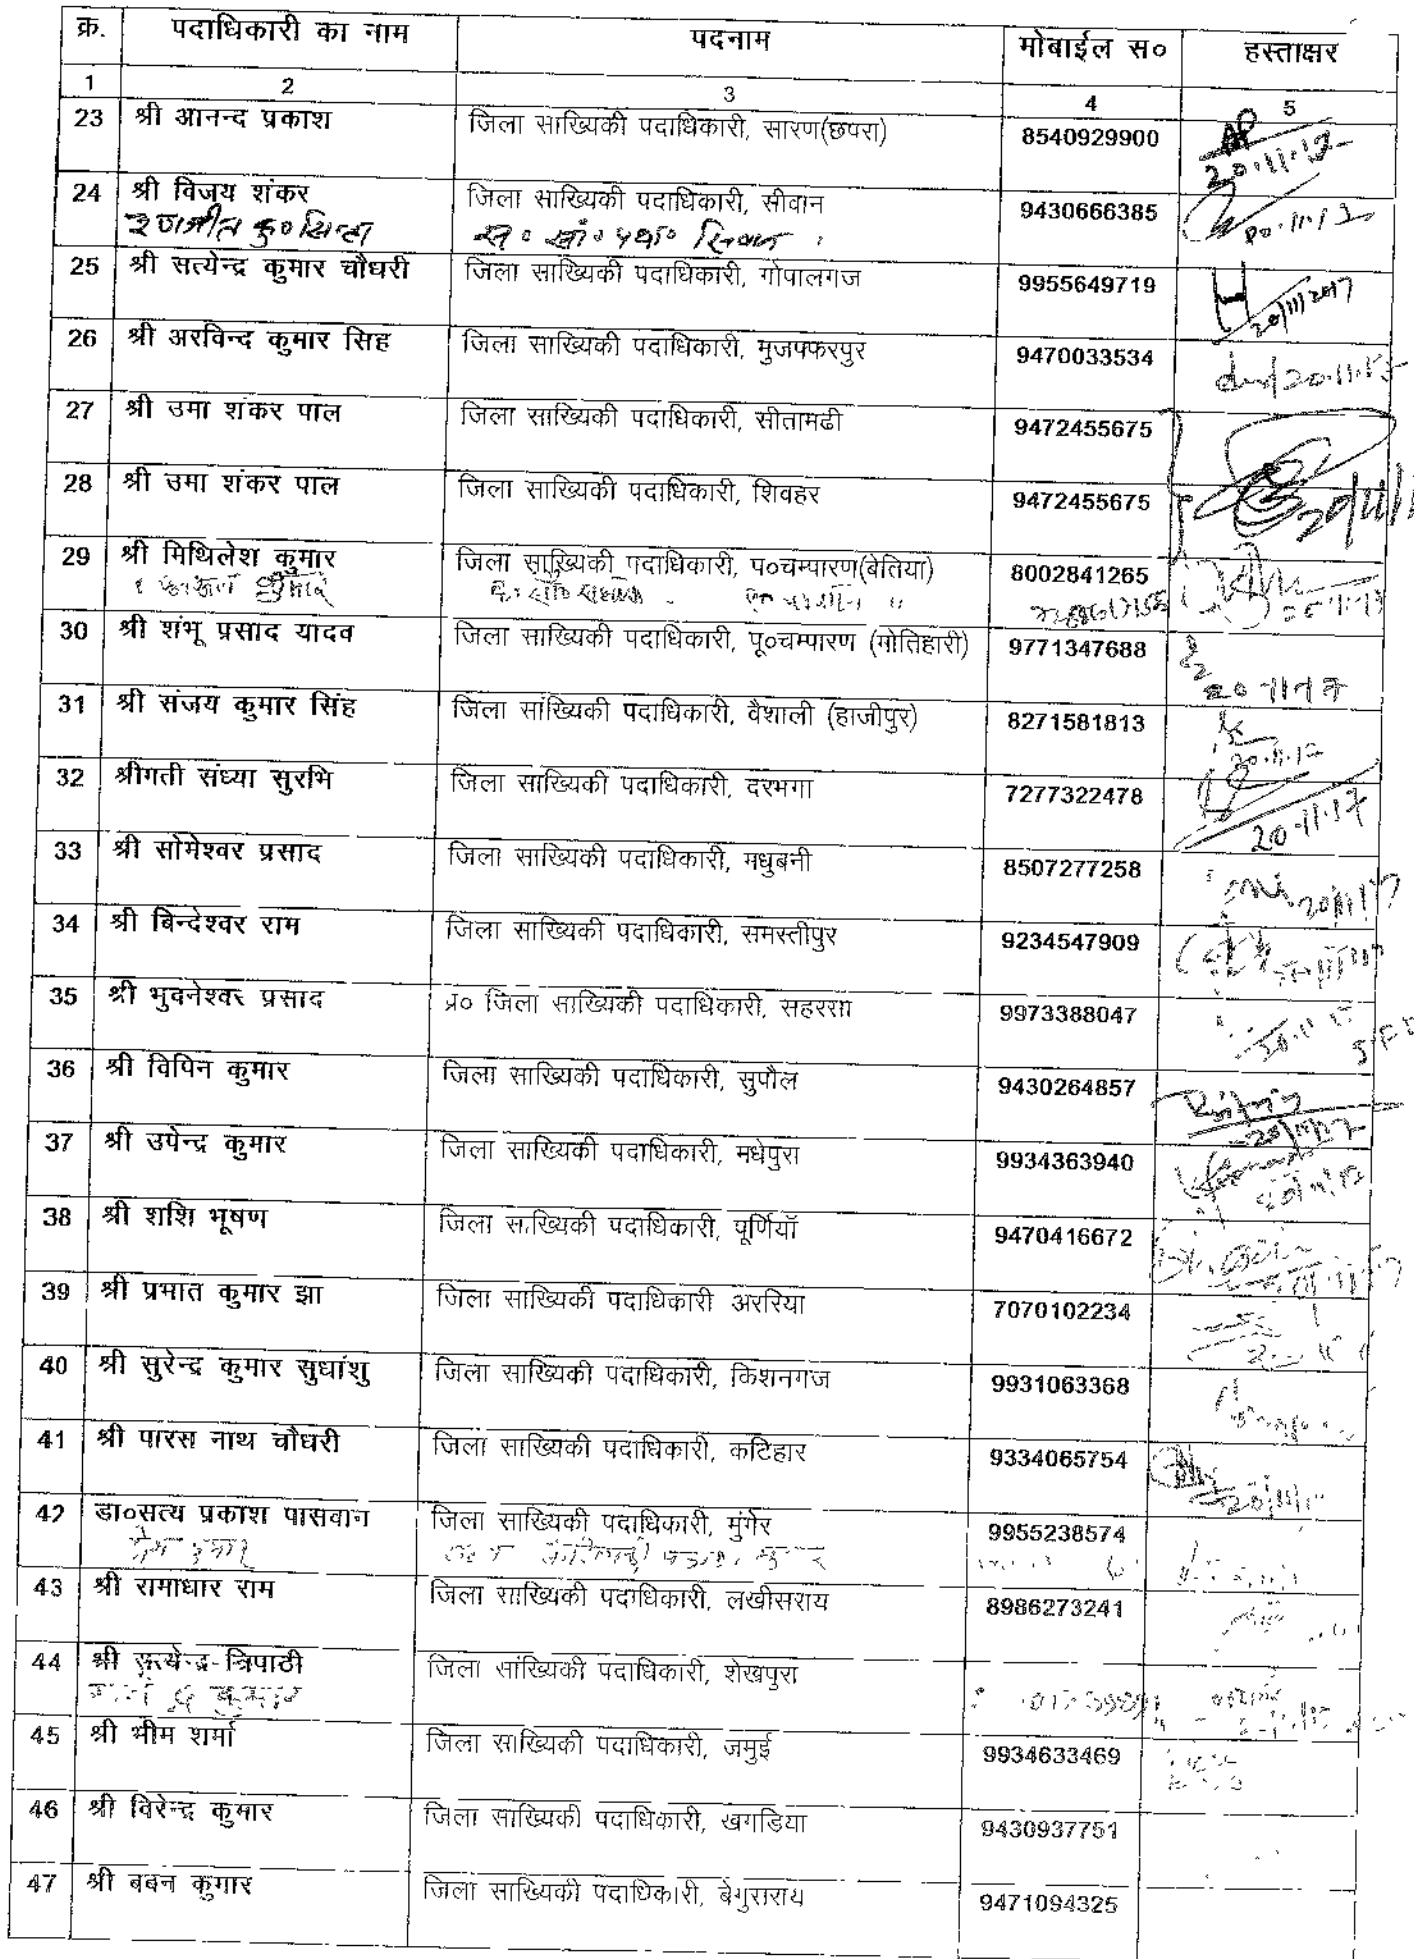 क्र. पदाधिकारी का नाम पदनाम मोबाईल स० हस्ताक्षर
1 2 3 4 5
23 श्री आनन्द प्रकाश जिला साख्यिकी पदाधिकारी, सारण(छपरा) 8540929900
20.11.17
24 श्री विजय शंकर जिला साख्यिकी पदाधिकारी, सीवान 9430666385
25 श्री सत्येन्द्र कुमार चौधरी जिला साख्यिकी पदाधिकारी, गोपालगज 9955649719
20/11/2017
26 श्री अरविन्द कुमार सिह जिला साख्यिकी पदाधिकारी, मुजफ्फरपुर 9470033534
20.11.17
27 श्री उमा शंकर पाल जिला साख्यिकी पदाधिकारी, सीतामढी 9472455675
28 श्री उमा शंकर पाल जिला साख्यिकी पदाधिकारी, शिवहर 9472455675
29 श्री मिथिलेश कुमार जिला साख्यिकी पदाधिकारी, प०चम्पारण(बेतिया) 8002841265
30 श्री शंभू प्रसाद यादव जिला साख्यिकी पदाधिकारी, पू०चम्पारण (मोतिहारी) 9771347688
20-11-17
31 श्री संजय कुमार सिंह जिला सांख्यिकी पदाधिकारी, वैशाली (हाजीपुर) 8271581813
20.11.17
32 श्रीमती संध्या सुरभि जिला साख्यिकी पदाधिकारी, दरभगा 7277322478
20.11.17
33 श्री सोमेश्वर प्रसाद जिला साख्यिकी पदाधिकारी, मधुबनी 8507277258
20/11/17
34 श्री बिन्देश्वर राम जिला साख्यिकी पदाधिकारी, समस्तीपुर 9234547909
35 श्री भुवनेश्वर प्रसाद प्र० जिला साख्यिकी पदाधिकारी, सहरसा 9973388047
36 श्री विपिन कुमार जिला साख्यिकी पदाधिकारी, सुपौल 9430264857
37 श्री उपेन्द्र कुमार जिला साख्यिकी पदाधिकारी, मधेपुरा 9934363940
38 श्री शशि भूषण जिला साख्यिकी पदाधिकारी, पूर्णियॉ 9470416672
39 श्री प्रभात कुमार झा जिला साख्यिकी पदाधिकारी अररिया 7070102234
40 श्री सुरेन्द्र कुमार सुधांशु जिला साख्यिकी पदाधिकारी, किशनगज 9931063368
41 श्री पारस नाथ चौधरी जिला साख्यिकी पदाधिकारी, कटिहार 9334065754
42 डा०सत्य प्रकाश पासवान जिला साख्यिकी पदाधिकारी, मुंगेर 9955238574
43 श्री रामाधार राम जिला साख्यिकी पदाधिकारी, लखीसराय 8986273241
44 श्री सत्येन्द्र त्रिपाठी जिला सांख्यिकी पदाधिकारी, शेखपुरा
45 श्री भीम शर्मा जिला साख्यिकी पदाधिकारी, जमुई 9934633469
46 श्री विरेन्द्र कुमार जिला साख्यिकी पदाधिकारी, खगडिया 9430937751
47 श्री बबन कुमार जिला साख्यिकी पदाधिकारी, बेगुसराय 9471094325